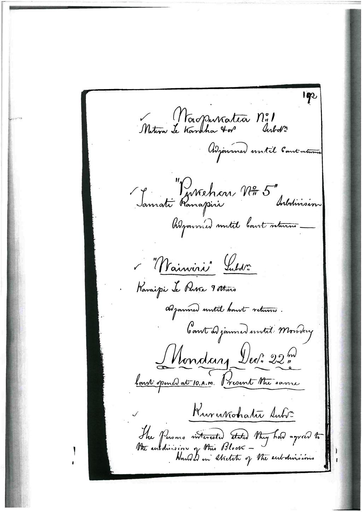 192
Waopukatea No 1
Metera Te Karaha & ors Subdn
Adjourned until Court returns
"Pukehou No 5"
Tamati Ranapiri Subdivision
Adjourned until Court returns
"Waiwiri" Subdn
Karaipi Te Puke & others
Adjourned until Court returns.
Court adjourned until Monday
Monday Decr 22nd
Court opened at 10. a.m. Present the same
Kurukohatu Subdn
The Persons interested stated they had agreed to
the subdivision of this Block —
Handed in Sketch of the subdivisions